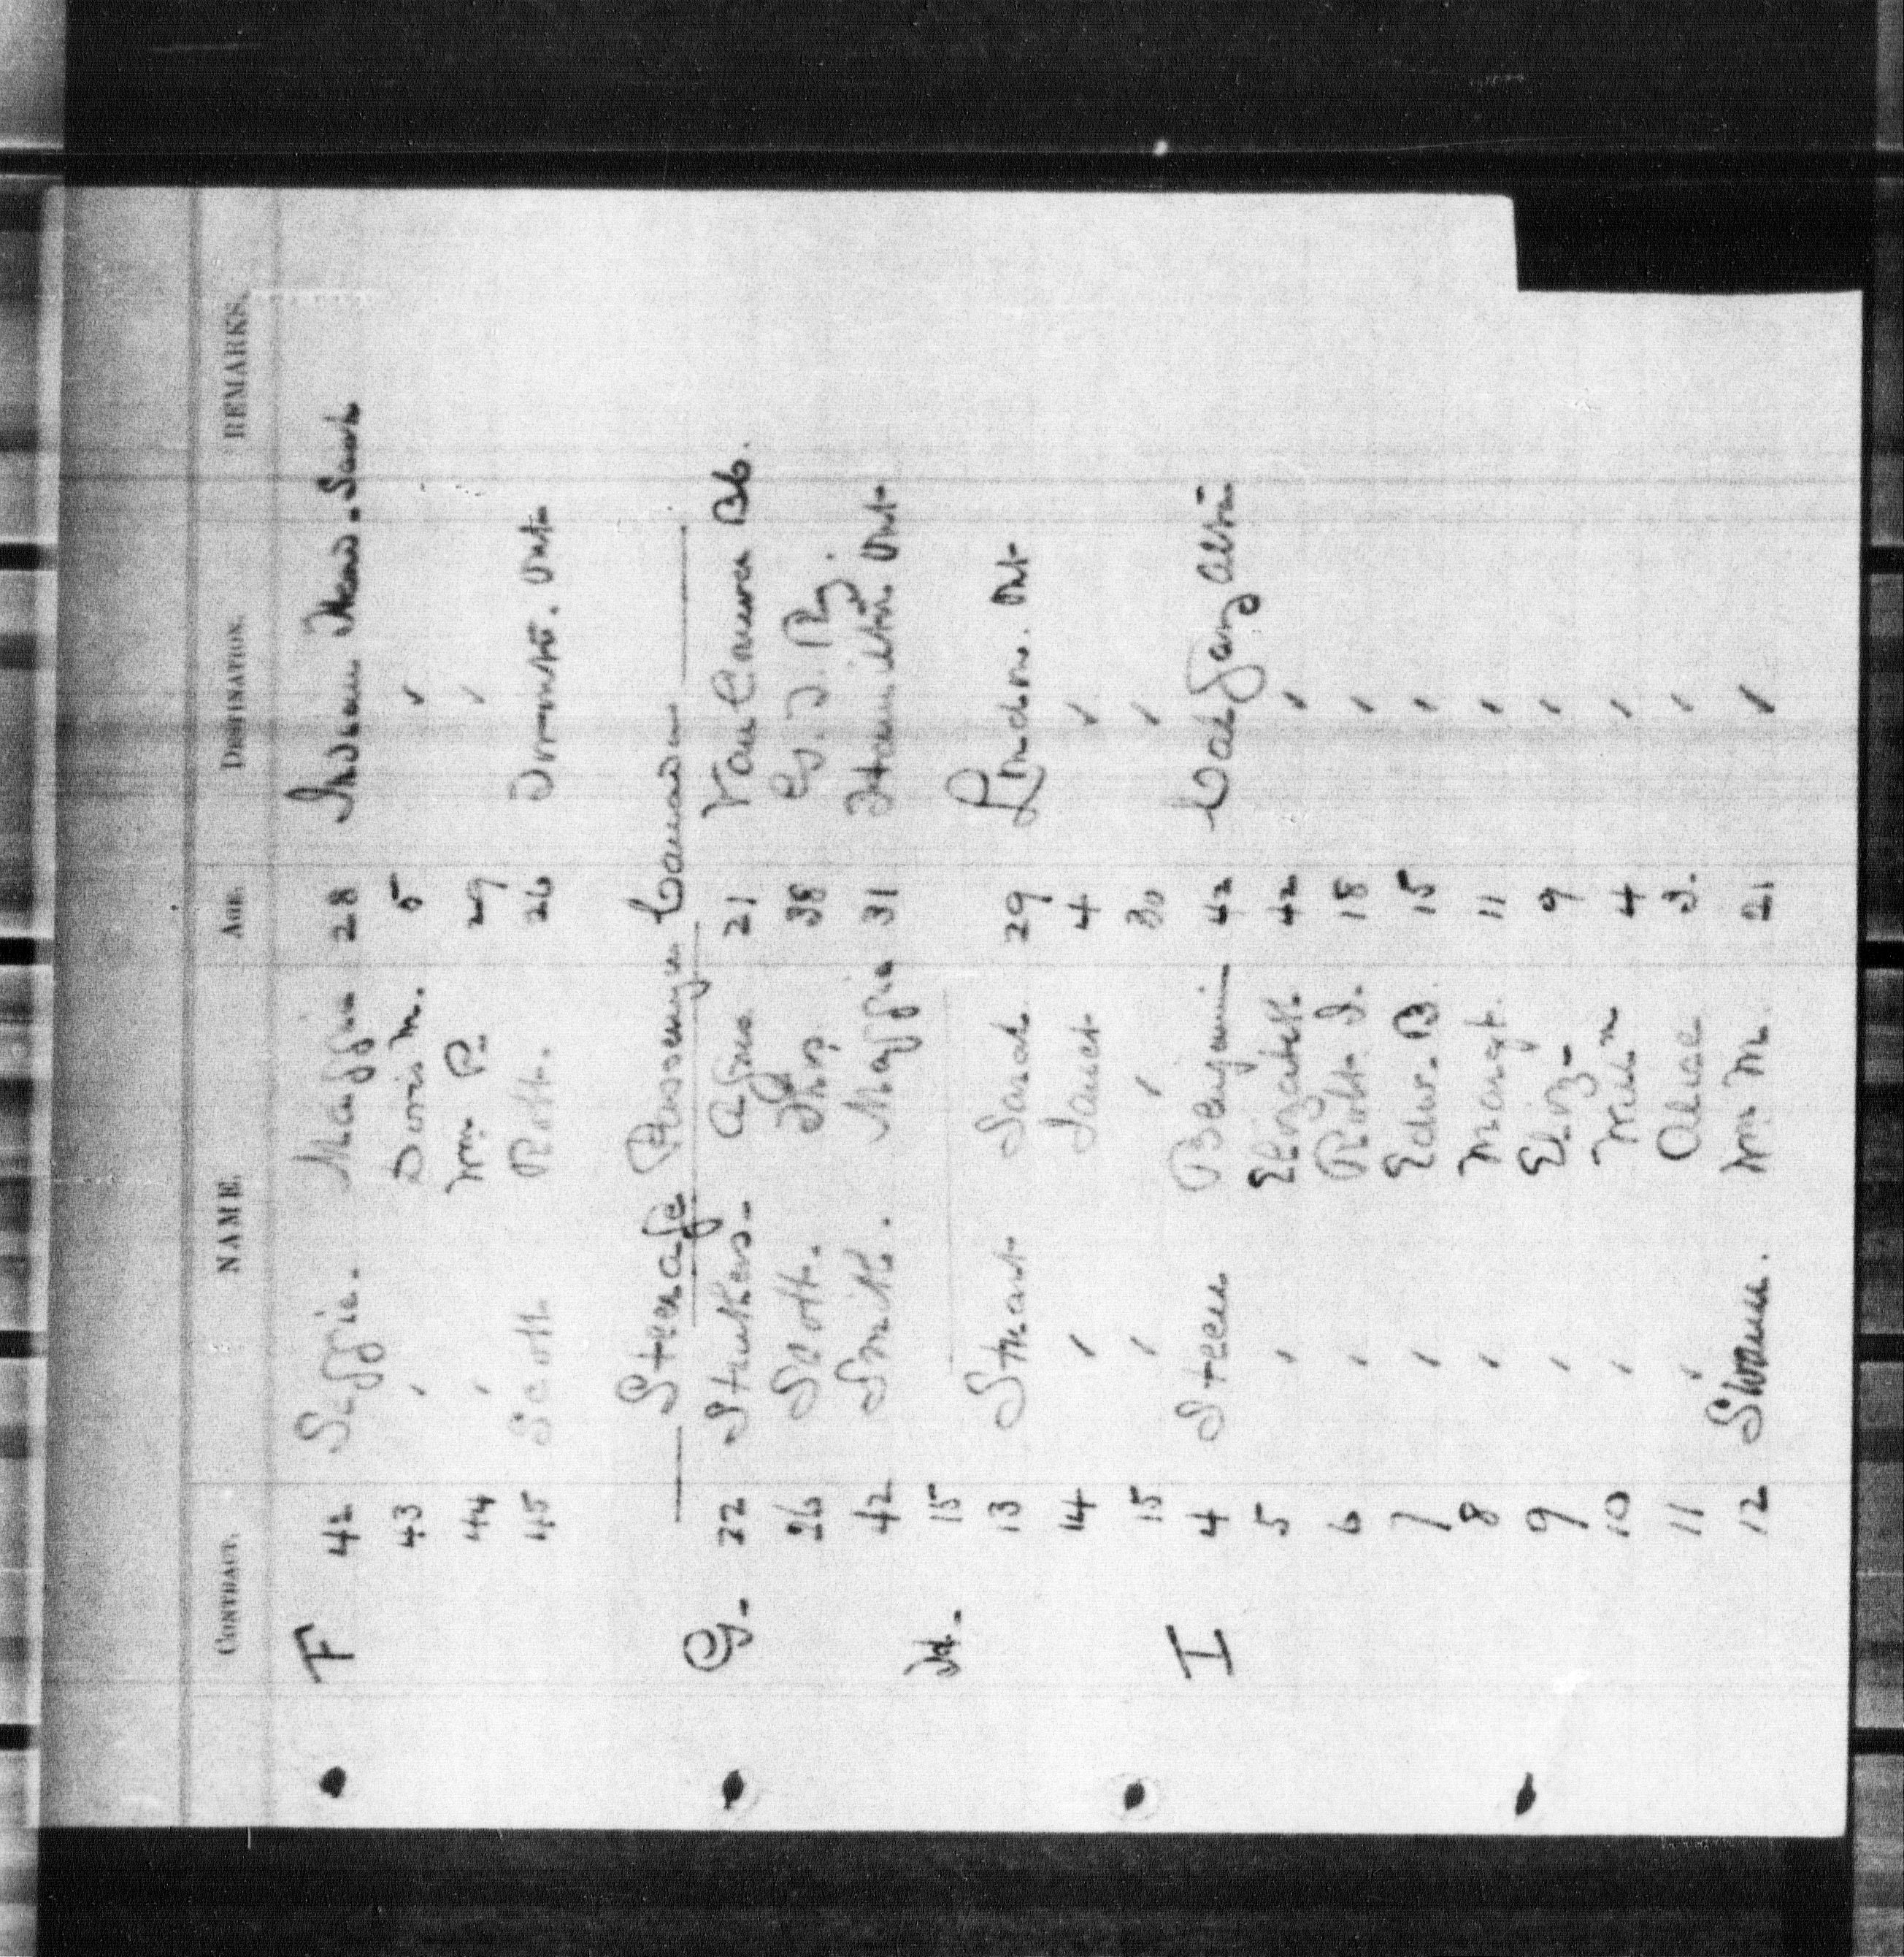 CONTRACT. NAME. AGE. DESTINATION. REMARKS.
F 42 Seggie. Maggie 28 Indian Head. Sask
43 ✓ Doris M. 5 ✓
44 ✓ Wm P. 29 ✓
45 Scott Robt. 26 Toronto. Ont
— Steerage Passengers Canada —
G. 22 Struthers. Agnes 21 Vancouver BC.
26 Scott. Thos 38 G. T. Ry.
42 Smith. Maggie 31 Hamilton Ont
H. 15
13 Stewart Sarah 29 London. Ont
14 ✓ Janet 4 ✓
15 ✓ ✓ 30 ✓
I 4 Steen Benjamin 42 Calgary Alta
5 ✓ Elizabeth 42 ✓
6 ✓ Robt. J. 18 ✓
7 ✓ Edw. B. 15 ✓
8 ✓ Margt. 11 ✓
9 ✓ Eliz- 9 ✓
10 ✓ 4 ✓
11 ✓ Alice 3. ✓
12 Swann. Wm M. 21 ✓